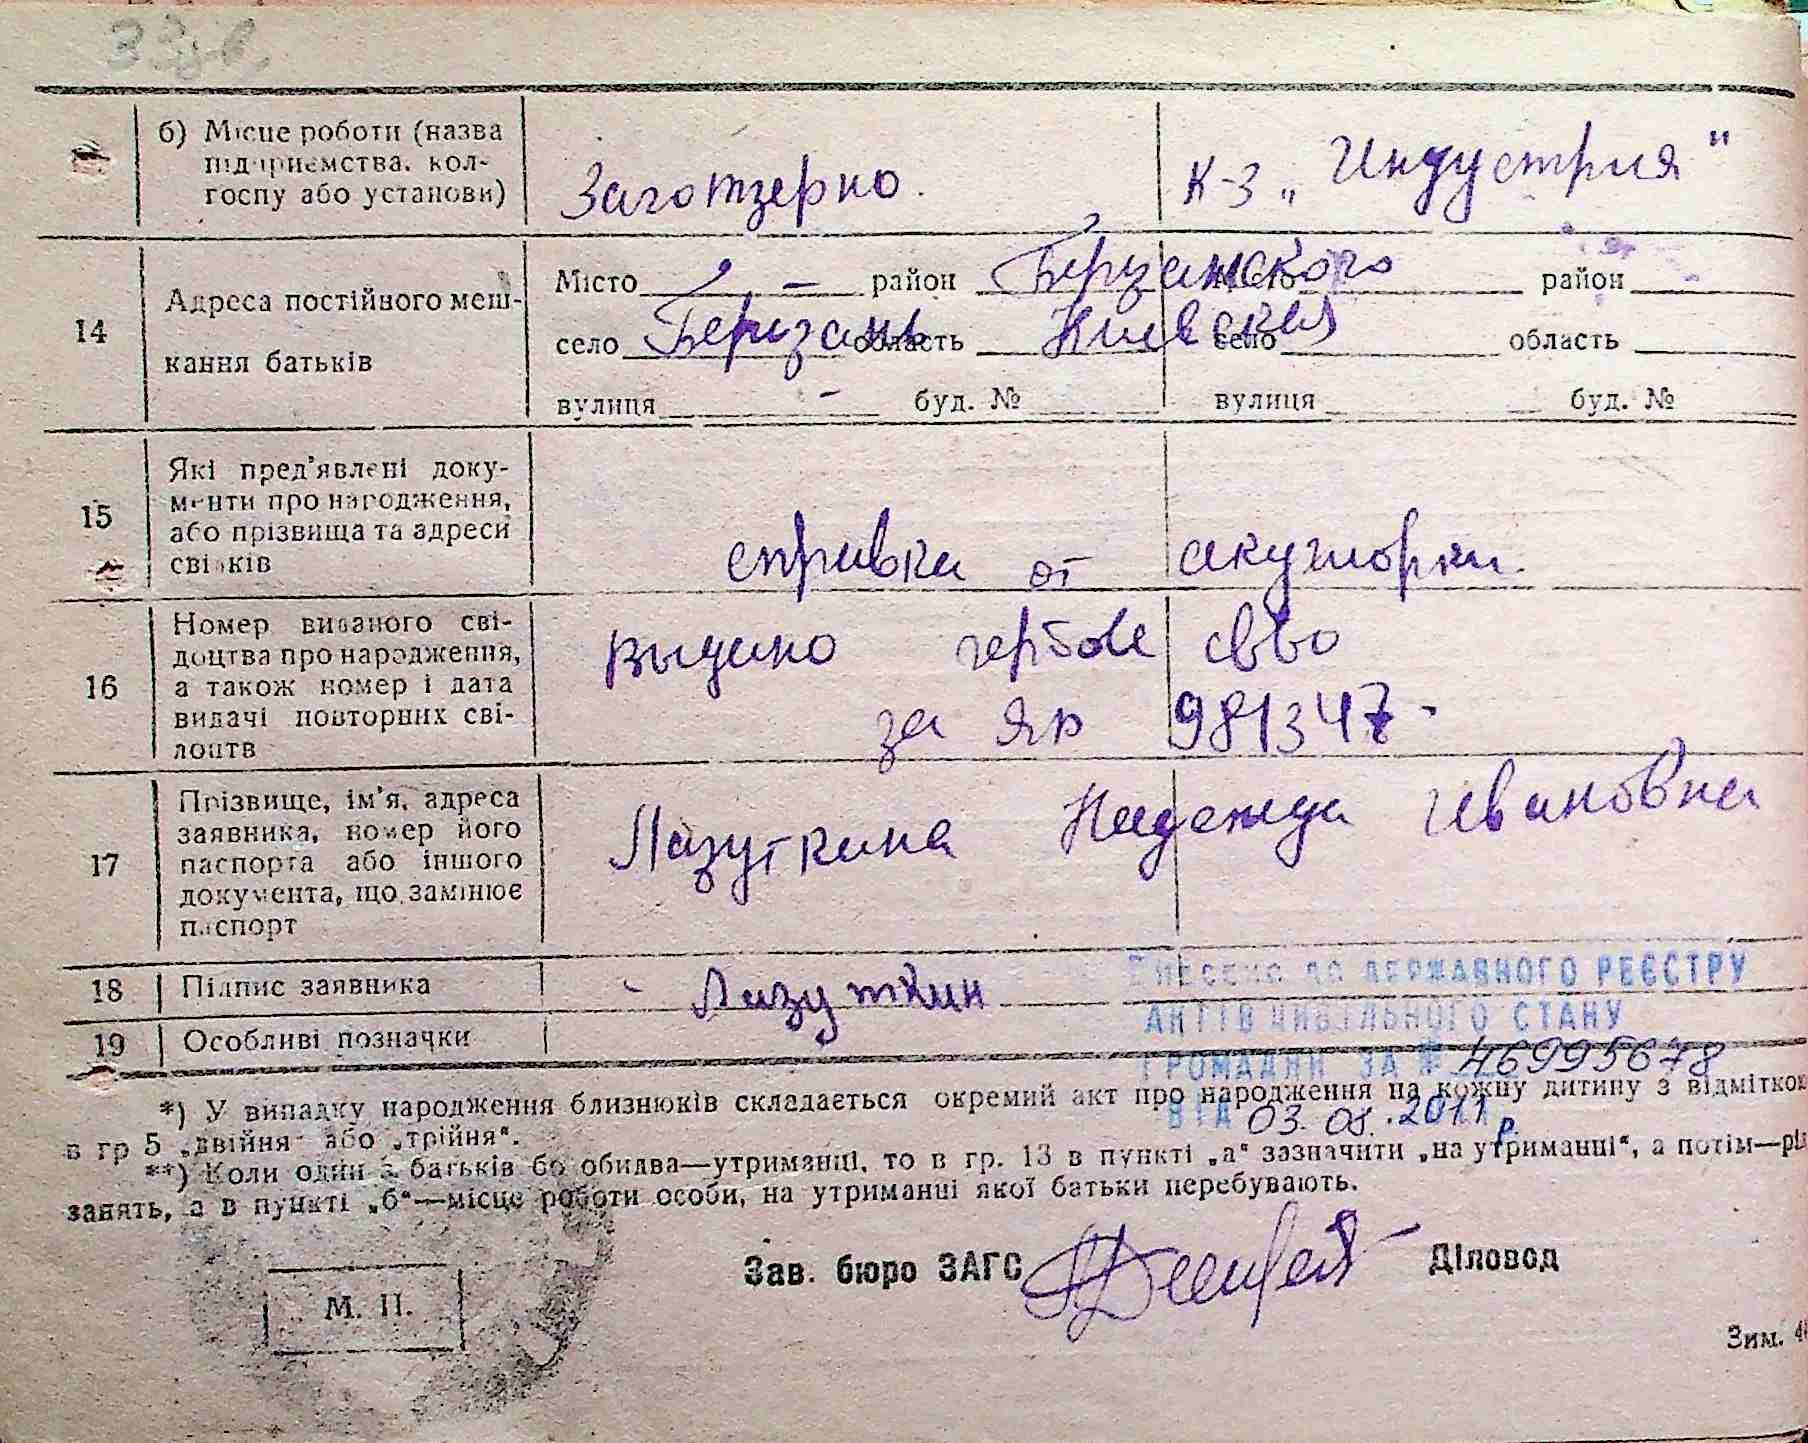 б) Місце роботи (назва
підприємства, кол-
госпу або установи)
Заготзерно.
к-з „Индустрия"
14
Адреса постійного меш-
кання батьків
Місто — район Березанского район
село Березань область Киевская село область
вулиця - буд. № вулиця буд. №
15
Які пред'явлені доку-
менти про народження,
або прізвища та адреси
свідків
справка от акушорки.
16
Номер виданого сві-
доцтва про народження,
а також номер і дата
видачі повторних сві-
доцтв
выдано гербове свво
за ЯР 981347.
17
Прізвище, ім'я, адреса
заявника, номер його
паспорта або іншого
документа, що замінює
паспорт
Лазуткина Надежда Ивановна
18
Підпис заявника
Лазуткин
19
Особливі позначки
ВНЕСЕНО ДО ДЕРЖАВНОГО РЕЄСТРУ
АКТІВ ЦИВІЛЬНОГО СТАНУ
ГРОМАДЯН ЗА № 46995678
ВІД 03.08.2011 р.
*) У випадку народження близнюків складається окремий акт про народження на кожну дитину з відміткою
в гр 5 „двійня" або „трійня".
**) Коли один з батьків бо обидва—утриманці, то в гр. 13 в пункті „а" зазначити „на утриманці", а потім—рід
занять, а в пункті „б"—місце роботи особи, на утриманці якої батьки перебувають.
М. П.
Зав. бюро ЗАГС
Діловод
Зим.